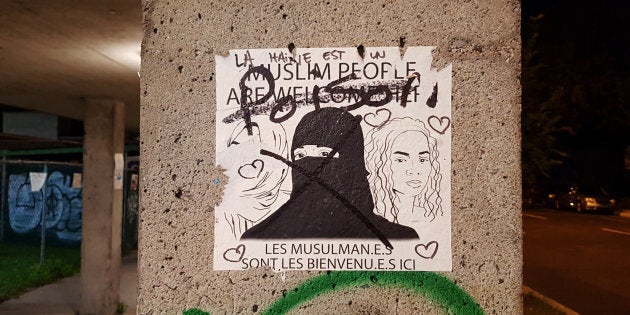 LA HAINE EST UN
MUSLIM PEOPLE
ARE WELCOME
Poison
LES MUSULMAN.E.S
SONT LES BIENVENU.E.S ICI